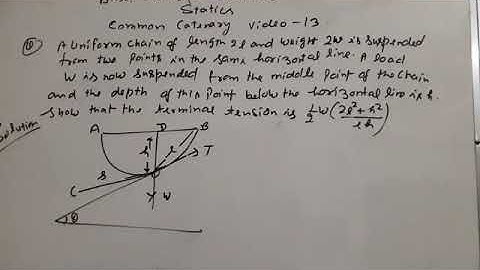 Statics
Common Catenary video-13
Q A Uniform chain of length 2l and weight 2W is suspended
from two points in the same horizontal line. A load
W is now suspended from the middle point of the chain
and the depth of this point below the horizontal line is h.
Show that the terminal tension is 1/2 W (2l²+h²/lh)
Solution
A D B
h l T
s
C
W
θ